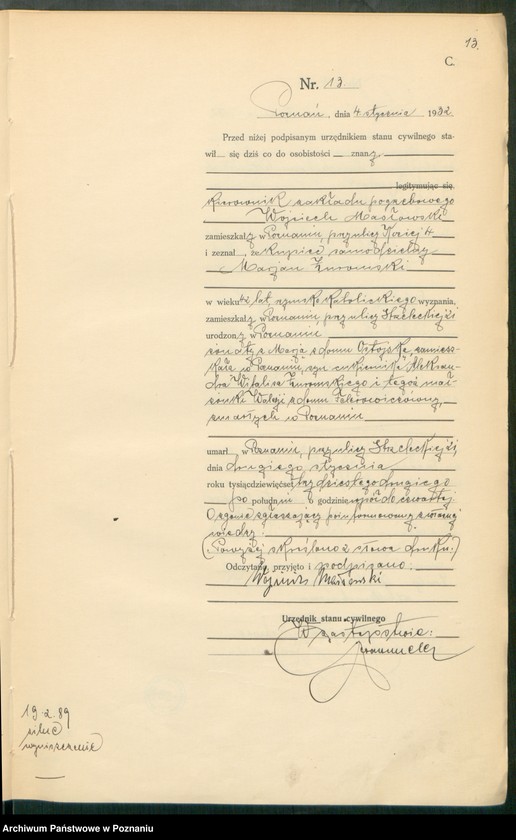 13.
C.
Nr. 13.
Poznań, dnia 4 stycznia 1932
Przed niżej podpisanym urzędnikiem stanu cywilnego sta-
wił się dziś co do osobistości znany
legitymując się
kierownik zakładu pogrzebowego
Wojciech Masłowski
zamieszkały w Poznaniu, przy ulicy Koziej 4
i zeznał, że kupiec samodzielny
Marjan Żuromski
w wieku 42 lat, rzymsko katolickiego wyznania,
zamieszkały w Poznaniu, przy ulicy Strzeleckiej
urodzony w Poznaniu
żonaty z Marją z domu zamiesz-
kałą w Poznaniu, syn cukiernika Aleksan-
dra Witalisa Żuromskiego i tegoż mał-
żonki Walerji z domu
zmarłych w Poznaniu
umarł w Poznaniu, przy ulicy Strzeleckiej
dnia drugiego stycznia
roku tysiącdziewięćset trzydziestego drugiego
po południu o godzinie wpół do czwartej
O zgonie zgłaszający poinformowany z własnej
wiedzy.
(Powyżej skreślono 2 słowa druku.)
Odczytano, przyjęto i podpisano:
Wojciech Masłowski
Urzędnik stanu cywilnego
W zastępstwie:
19.2.89
wyniszczenie
Archiwum Państwowe w Poznaniu